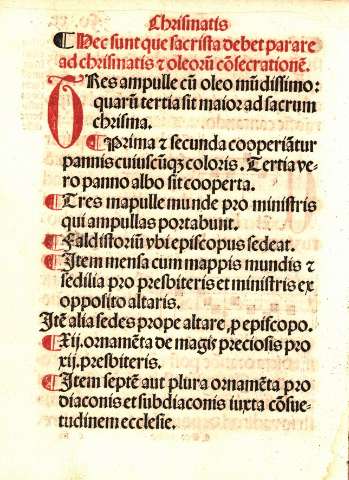 Chrismatis
¶ Hec sunt que sacrista debet parare
ad chrismatis ⁊ oleorū cōsecrationē.
TRes ampulle cū oleo mūdissimo:
quarū tertia sit maior ad sacrum
chrisma.
¶ Prima ⁊ secunda cooperiātur
pannis cuiuscūqꝫ coloris. Tertia ve-
ro panno albo sit cooperta.
¶ Tres mapulle munde pro ministris
qui ampullas portabunt.
¶ Faldistoriū vbi episcopus sedeat.
¶ Item mensa cum mappis mundis ⁊
sedilia pro presbiteris et ministris ex
opposito altaris.
Itē alia sedes prope altare, ꝓ episcopo.
¶ Xij. ornamēta de magis preciosis pro
xij. presbiteris.
¶ Item septē aut plura ornamēta pro
diaconis et subdiaconis iuxta cōsue-
tudinem ecclesie.